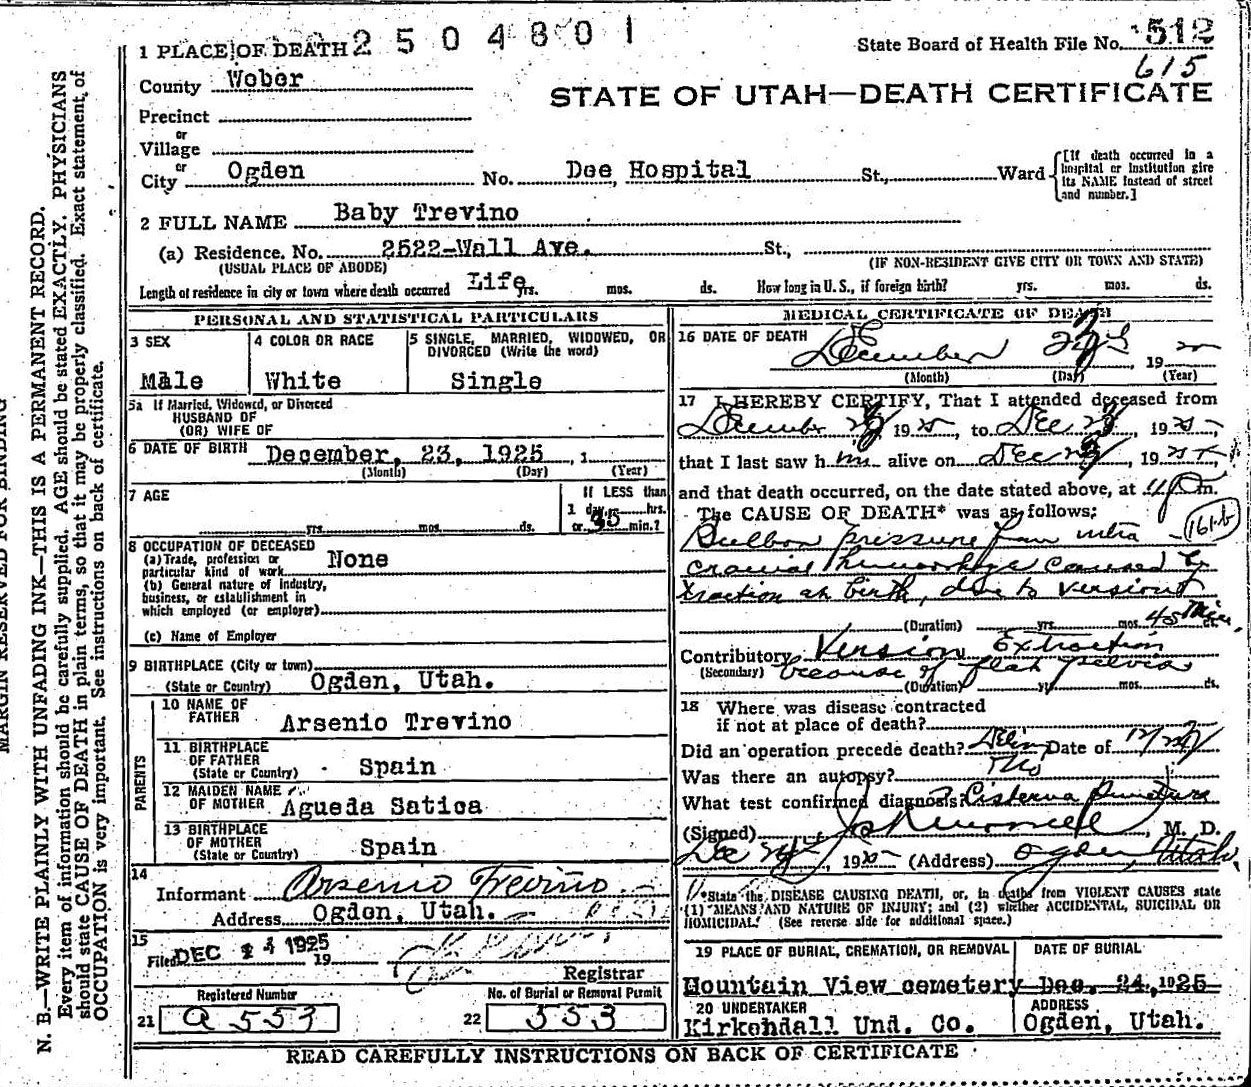 2504801
1 PLACE OF DEATH
State Board of Health File No. 512
615
County Weber
STATE OF UTAH—DEATH CERTIFICATE
Precinct
or
Village
or
City Ogden No. Dee Hospital St., Ward
[If death occurred in a hospital or institution give its NAME instead of street and number.]
2 FULL NAME Baby Trevino
(a) Residence. No. 2522-Wall Ave. St.,
(USUAL PLACE OF ABODE) (IF NON-RESIDENT GIVE CITY OR TOWN AND STATE)
Length of residence in city or town where death occurred Life yrs. mos. ds. How long in U. S., if foreign birth? yrs. mos. ds.
PERSONAL AND STATISTICAL PARTICULARS
3 SEX
Male
4 COLOR OR RACE
White
5 SINGLE, MARRIED, WIDOWED, OR DIVORCED (Write the word)
Single
5a If Married, Widowed, or Divorced
HUSBAND OF
(OR) WIFE OF
6 DATE OF BIRTH December, 23, 1925, 1
(Month) (Day) (Year)
7 AGE
yrs. mos. ds.
If LESS than
1 day, hrs.
or min.?
8 OCCUPATION OF DECEASED
(a) Trade, profession or
particular kind of work None
(b) General nature of industry,
business, or establishment in
which employed (or employer)
(c) Name of Employer
9 BIRTHPLACE (City or town)
(State or Country) Ogden, Utah.
PARENTS
10 NAME OF
FATHER Arsenio Trevino
11 BIRTHPLACE
OF FATHER
(State or Country) Spain
12 MAIDEN NAME
OF MOTHER Agueda Satica
13 BIRTHPLACE
OF MOTHER
(State or Country) Spain
14
Informant Arsenio Treviño
Address Ogden, Utah.
15
Filed DEC 24 1925 19
Registrar
Registered Number
21 a 553
No. of Burial or Removal Permit
22 553
MEDICAL CERTIFICATE OF DEATH
16 DATE OF DEATH
December 23 19
(Month) (Day) (Year)
17 I HEREBY CERTIFY, That I attended deceased from
December 23 1925, to Dec 23, 1925,
that I last saw him alive on Dec 23, 1925,
and that death occurred, on the date stated above, at m.
The CAUSE OF DEATH* was as follows:
161-b
Bulbar pressure from intra
cranial hemorrhage caused by
traction at birth, due to version
(Duration) yrs. mos. 45 Min. ds.
Contributory Version Extraction
(Secondary) because of flat pelvis
(Duration) yrs. mos. ds.
18 Where was disease contracted
if not at place of death?
Did an operation precede death? Date of
Was there an autopsy? No
What test confirmed diagnosis? Cisterna puncture
(Signed) , M. D.
Dec 24, 1925 (Address) Ogden, Utah.
*State the DISEASE CAUSING DEATH, or, in deaths from VIOLENT CAUSES state
(1) MEANS AND NATURE OF INJURY; and (2) whether ACCIDENTAL, SUICIDAL OR
HOMICIDAL. (See reverse side for additional space.)
19 PLACE OF BURIAL, CREMATION, OR REMOVAL
Mountain View cemetery
DATE OF BURIAL
Dec. 24, 1925
20 UNDERTAKER
Kirkendall Und. Co.
ADDRESS
Ogden, Utah.
READ CAREFULLY INSTRUCTIONS ON BACK OF CERTIFICATE
MARGIN RESERVED FOR BINDING
N. B.—WRITE PLAINLY WITH UNFADING INK—THIS IS A PERMANENT RECORD.
Every item of information should be carefully supplied. AGE should be stated EXACTLY. PHYSICIANS
should state CAUSE OF DEATH in plain terms, so that it may be properly classified. Exact statement of
OCCUPATION is very important. See instructions on back of certificate.